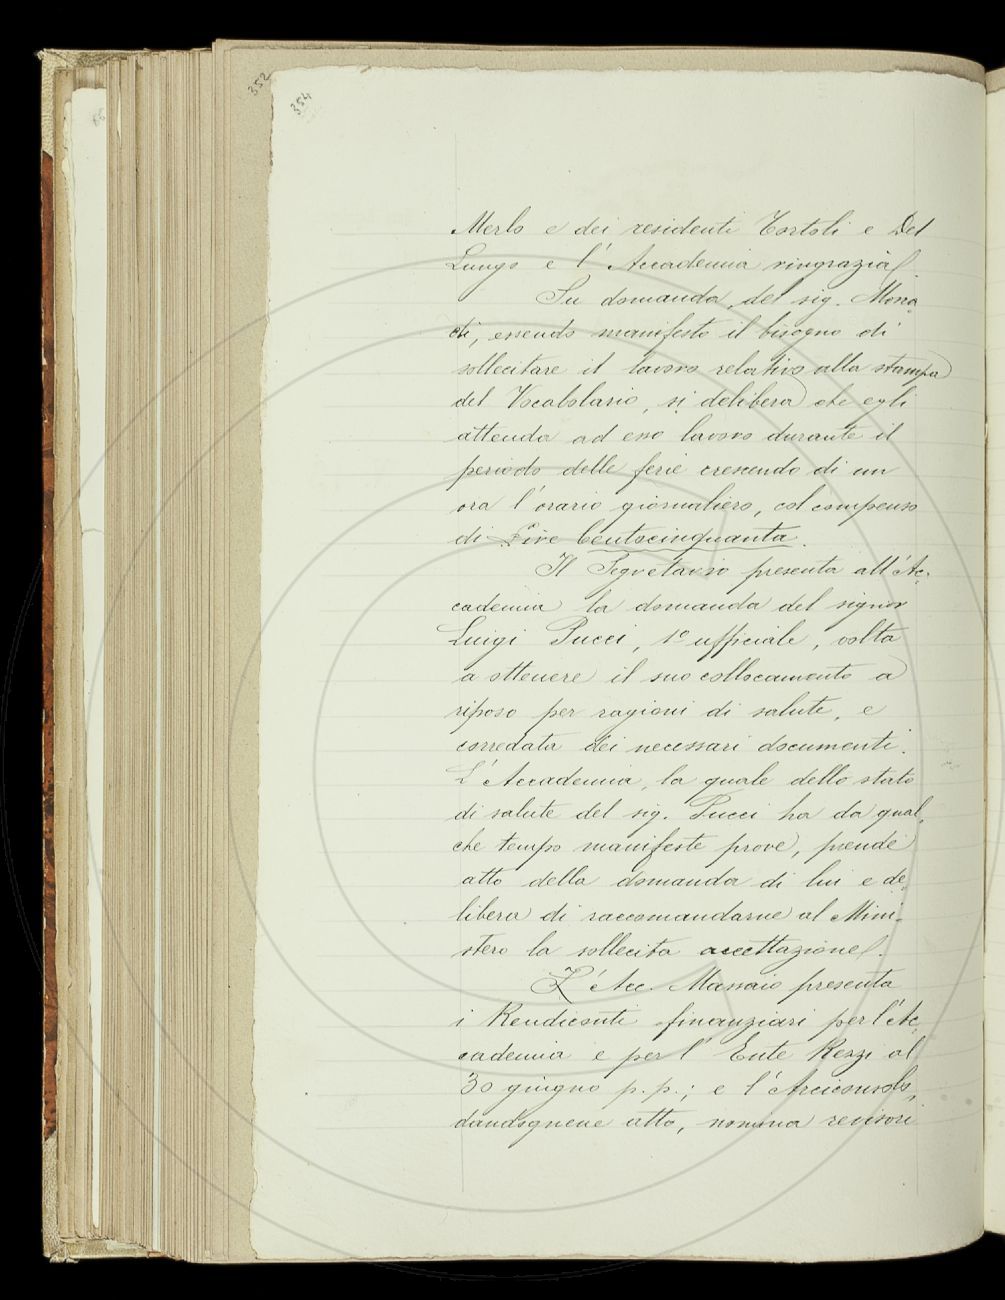 352
354
Merlo e dei residenti Tortoli e Del
Lungo e l'Accademia ringrazia.
Su domanda del sig. Mora-
di, essendo manifesto il bisogno di
sollecitare il lavoro relativo alla stampa
del Vocabolario, si delibera che egli
attenda ad esso lavoro durante il
periodo delle ferie crescendo di un
ora l'orario giornaliero, col compenso
di Lire Centocinquanta.
Il Segretario presenta all'Ac-
cademia la domanda del signor
Luigi Pucci, 1º ufficiale, volta
a ottenere il suo collocamento a
riposo per ragioni di salute, e
corredata dei necessari documenti.
L'Accademia, la quale dello stato
di salute del sig. Pucci ha da qual-
che tempo manifeste prove, prende
atto della domanda di lui e de-
libera di raccomandarne al Mini-
stero la sollecita accettazione.
L'Acc. Massaio presenta
i Rendiconti finanziari per l'Ac-
cademia e per l'Ente Rezzi al
30 giugno p.p.; e l'Arciconsolo,
dandogliene atto, nomina revisori